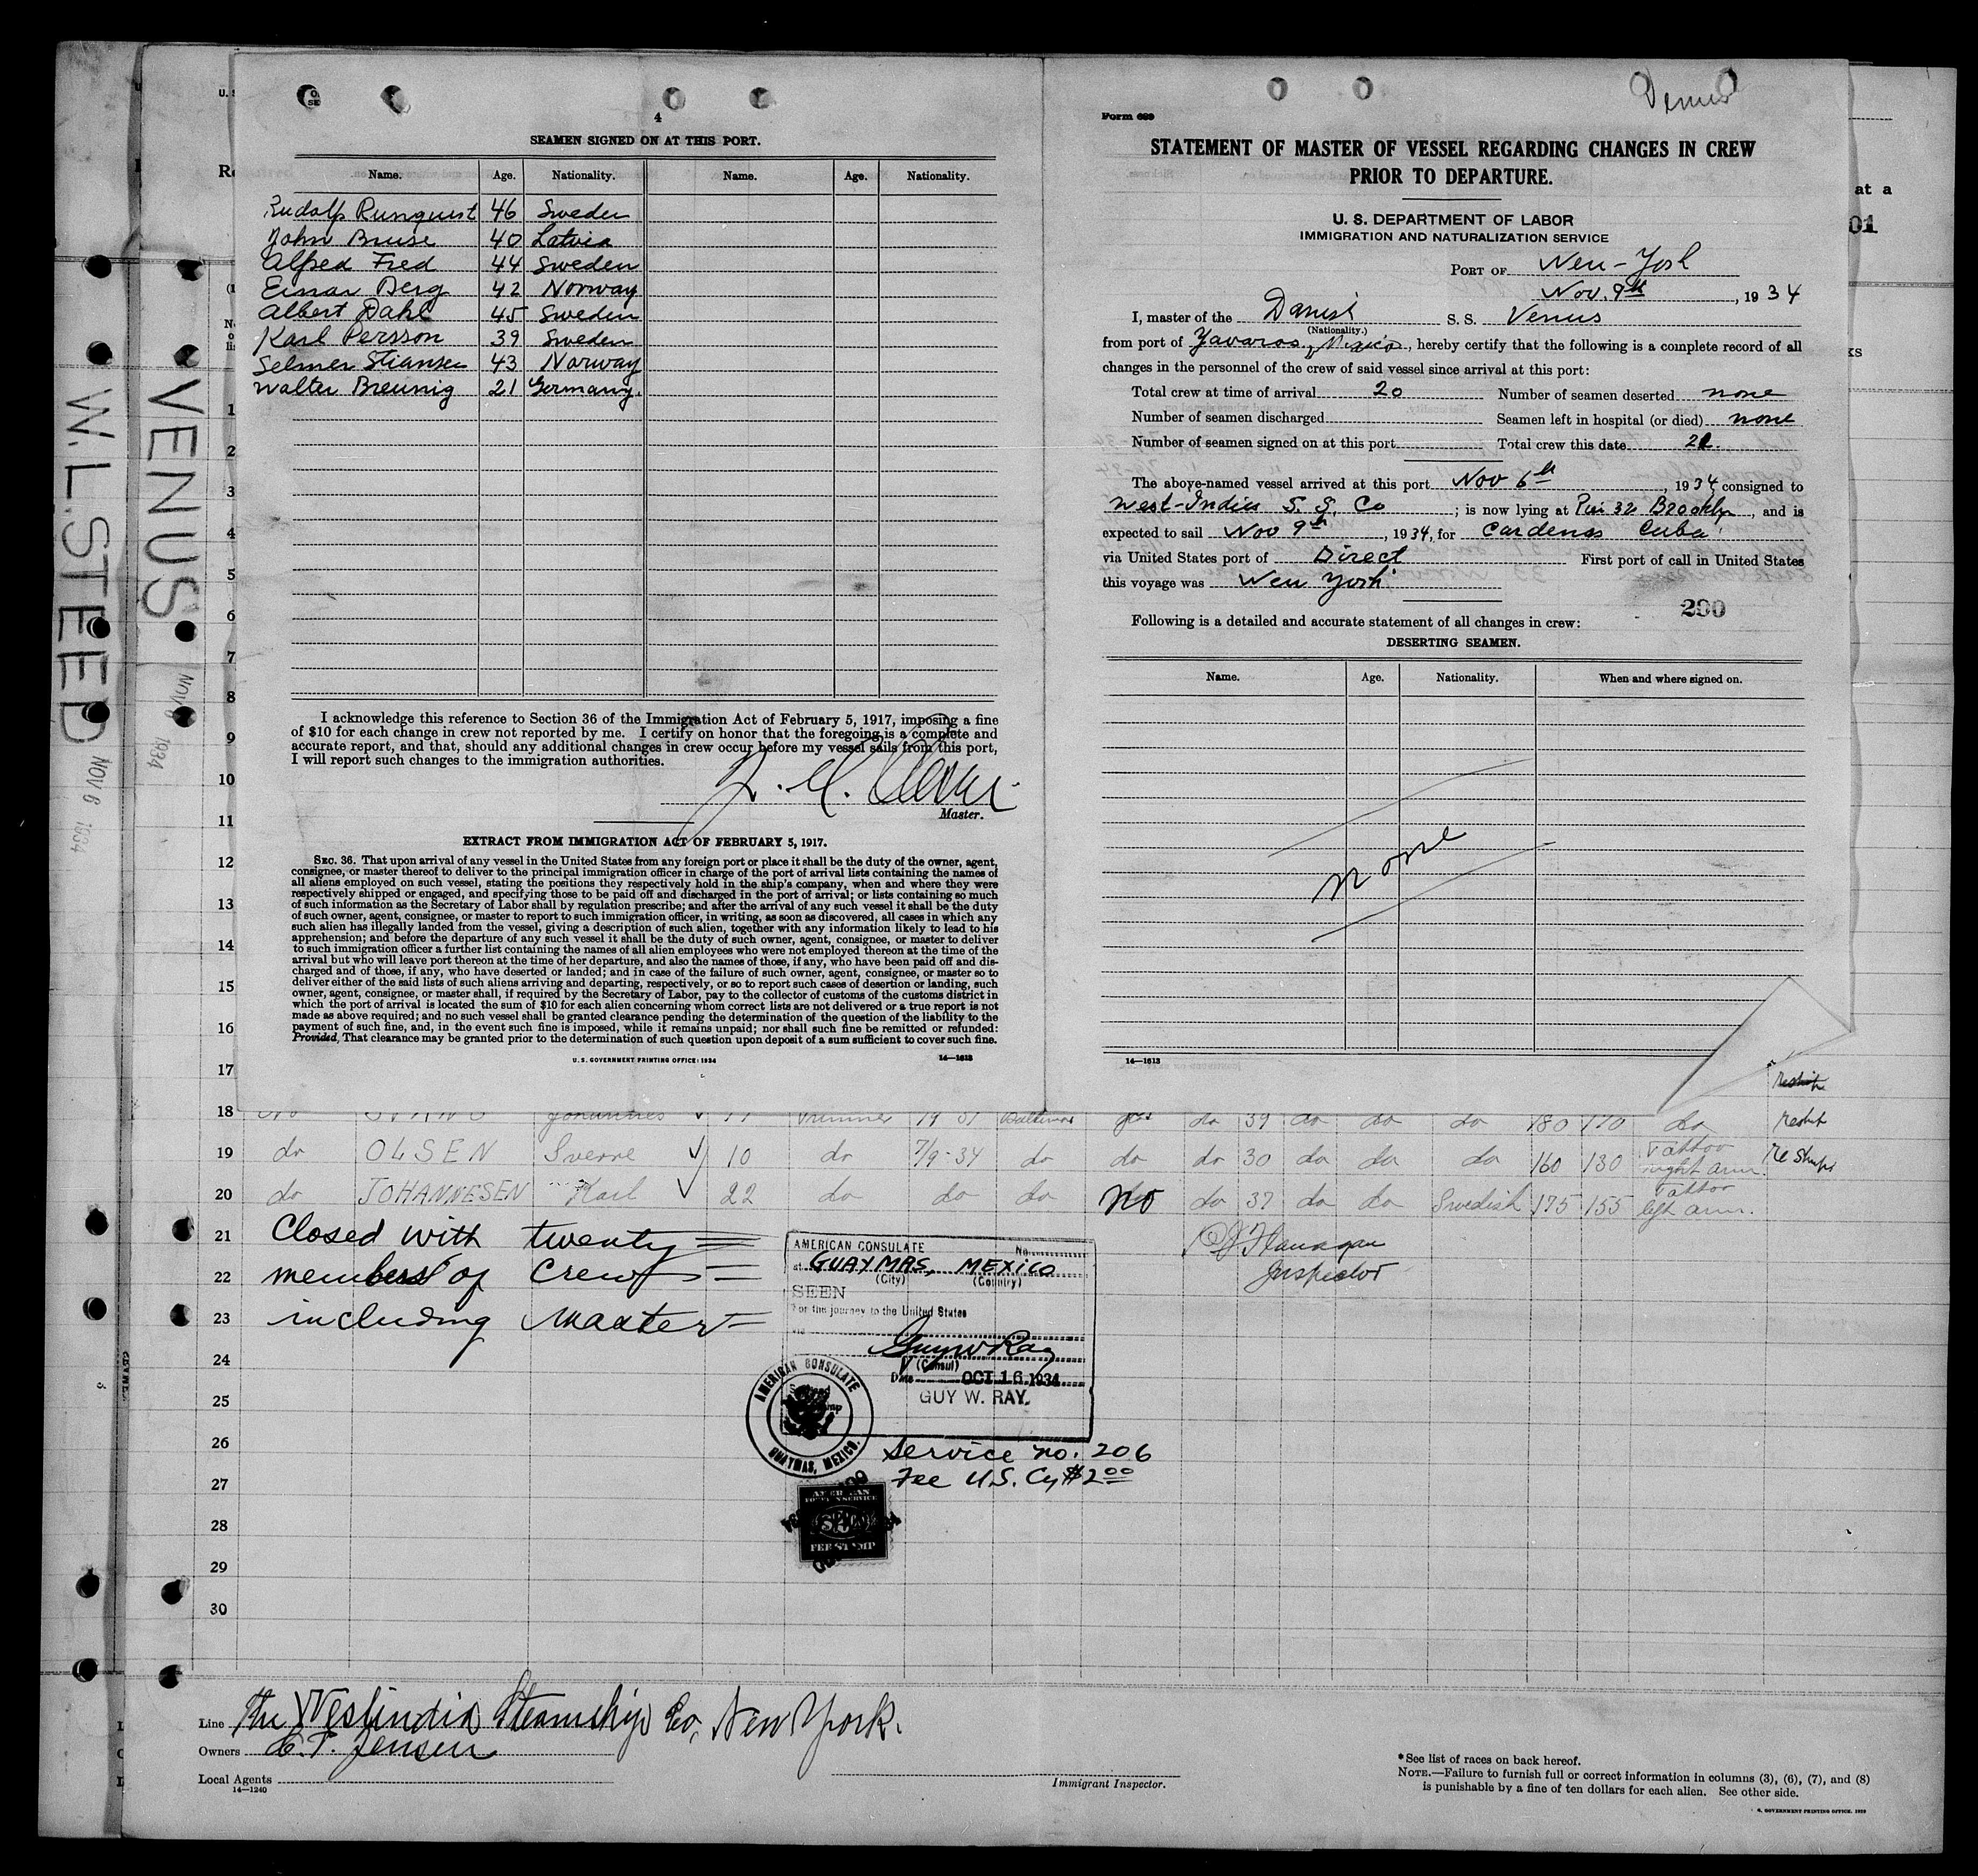 4
SEAMEN SIGNED ON AT THIS PORT.
Name. Age. Nationality. Name. Age. Nationality.
Rudolf Runquist 46 Sweden
John Bruse 40 Latvia
Alfred Fred 44 Sweden
Einar Berg 42 Norway
Albert Dahl 45 Sweden
Karl Persson 39 Sweden
Selmer Stiansen 43 Norway
Walter Breunig 21 Germany.
I acknowledge this reference to Section 36 of the Immigration Act of February 5, 1917, imposing a fine
of $10 for each change in crew not reported by me. I certify on honor that the foregoing is a complete and
accurate report, and that, should any additional changes in crew occur before my vessel sails from this port,
I will report such changes to the immigration authorities.
Master.
EXTRACT FROM IMMIGRATION ACT OF FEBRUARY 5, 1917.
SEC. 36. That upon arrival of any vessel in the United States from any foreign port or place it shall be the duty of the owner, agent,
consignee, or master thereof to deliver to the principal immigration officer in charge of the port of arrival lists containing the names of
all aliens employed on such vessel, stating the positions they respectively hold in the ship's company, when and where they were
respectively shipped or engaged, and specifying those to be paid off and discharged in the port of arrival; or lists containing so much
of such information as the Secretary of Labor shall by regulation prescribe; and after the arrival of any such vessel it shall be the duty
of such owner, agent, consignee, or master to report to such immigration officer, in writing, as soon as discovered, all cases in which any
such alien has illegally landed from the vessel, giving a description of such alien, together with any information likely to lead to his
apprehension; and before the departure of any such vessel it shall be the duty of such owner, agent, consignee, or master to deliver
to such immigration officer a further list containing the names of all alien employees who were not employed thereon at the time of the
arrival but who will leave port thereon at the time of her departure, and also the names of those, if any, who have been paid off and dis-
charged and of those, if any, who have deserted or landed; and in case of the failure of such owner, agent, consignee, or master so to
deliver either of the said lists of such aliens arriving and departing, respectively, or so to report such cases of desertion or landing, such
owner, agent, consignee, or master shall, if required by the Secretary of Labor, pay to the collector of customs of the customs district in
which the port of arrival is located the sum of $10 for each alien concerning whom correct lists are not delivered or a true report is not
made as above required; and no such vessel shall be granted clearance pending the determination of the question of the liability to the
payment of such fine, and, in the event such fine is imposed, while it remains unpaid; nor shall such fine be remitted or refunded:
Provided, That clearance may be granted prior to the determination of such question upon deposit of a sum sufficient to cover such fine.
U. S. GOVERNMENT PRINTING OFFICE: 1934 14—1613
Venus
Form 689
STATEMENT OF MASTER OF VESSEL REGARDING CHANGES IN CREW
PRIOR TO DEPARTURE.
U. S. DEPARTMENT OF LABOR
IMMIGRATION AND NATURALIZATION SERVICE
PORT OF New-York
Nov. 9th, 1934
I, master of the Danish S. S. Venus
(Nationality.)
from port of Yavaros, Mexico, hereby certify that the following is a complete record of all
changes in the personnel of the crew of said vessel since arrival at this port:
Total crew at time of arrival 20 Number of seamen deserted none
Number of seamen discharged Seamen left in hospital (or died) none
Number of seamen signed on at this port Total crew this date 21.
The above-named vessel arrived at this port Nov 6th, 1934 consigned to
West-Indies S. S. Co; is now lying at Pier 32 Brooklyn, and is
expected to sail Nov 9th, 1934, for Cardenas Cuba
via United States port of Direct First port of call in United States
this voyage was New York
290
Following is a detailed and accurate statement of all changes in crew:
DESERTING SEAMEN.
Name. Age. Nationality. When and where signed on.
none
14—1613
VENUS NOV 6 1934
W.L. STEED NOV 6 1934
at a
01
1
2
3
4
5
6
7
8
9
10
11
12
13
14
15
16
17
18 Johannes do 39 do do do 180 170 do
19 do OLSEN Sverre 10 do 7/9-34 do do do 30 do do do 160 130 Tattoo right arm.
20 do JOHANNESEN Karl 22 do do do No do 37 do do Swedish 175 155 Tattoo left arm.
21 Closed with twenty
22 members of Crew
23 including Master
24
25
26
27
28
29
30
Flanagan
Inspector
AMERICAN CONSULATE No.
at GUAYMAS, MEXICO
(City) (Country)
SEEN
For the journey to the United States
via
Guy W Ray
(Consul)
Date OCT 16 1934
GUY W. RAY.
AMERICAN CONSULATE
GUAYMAS, MEXICO.
Service no. 206
Fee U.S. Cy $2.00
AMERICAN
FOREIGN SERVICE
FEE STAMP
Line The Westindia Steamship Co, New York.
Owners C. T. Jensen
Local Agents
14—1240
Immigrant Inspector.
*See list of races on back hereof.
NOTE.—Failure to furnish full or correct information in columns (3), (6), (7), and (8)
is punishable by a fine of ten dollars for each alien. See other side.